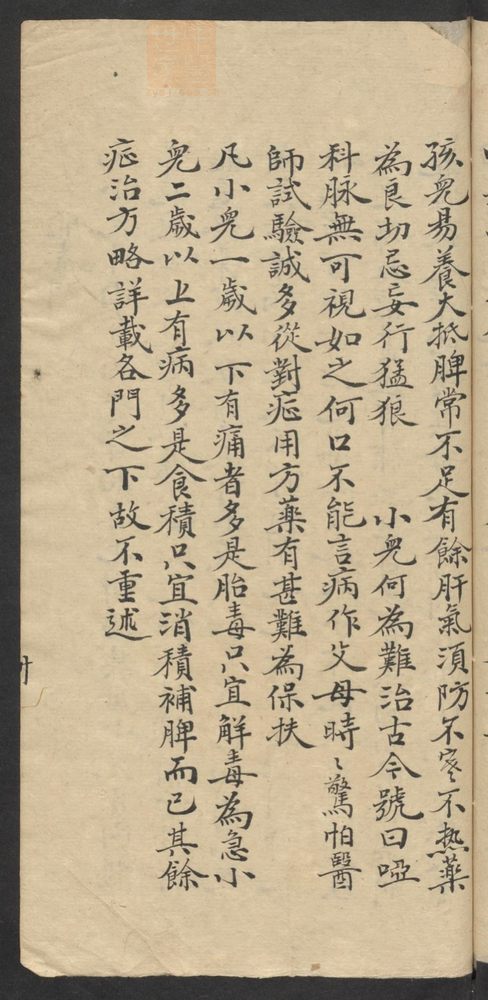 孩児易養大抵脾常不足有餘肝氣須防不寒不热藥
為良切忌妄行猛狼　小児何為難治古今號曰啞
科脉無可視如之何口不能言病作父母時〻驚怕醫
師試驗誠多從對症用方藥有甚難為保扶
凡小児一歲以下有痛者多是胎毒只宜解毒為急小
児二歲以上有病多是食積只宜消積補脾而已其餘
症治方略詳載各門之下故不重述